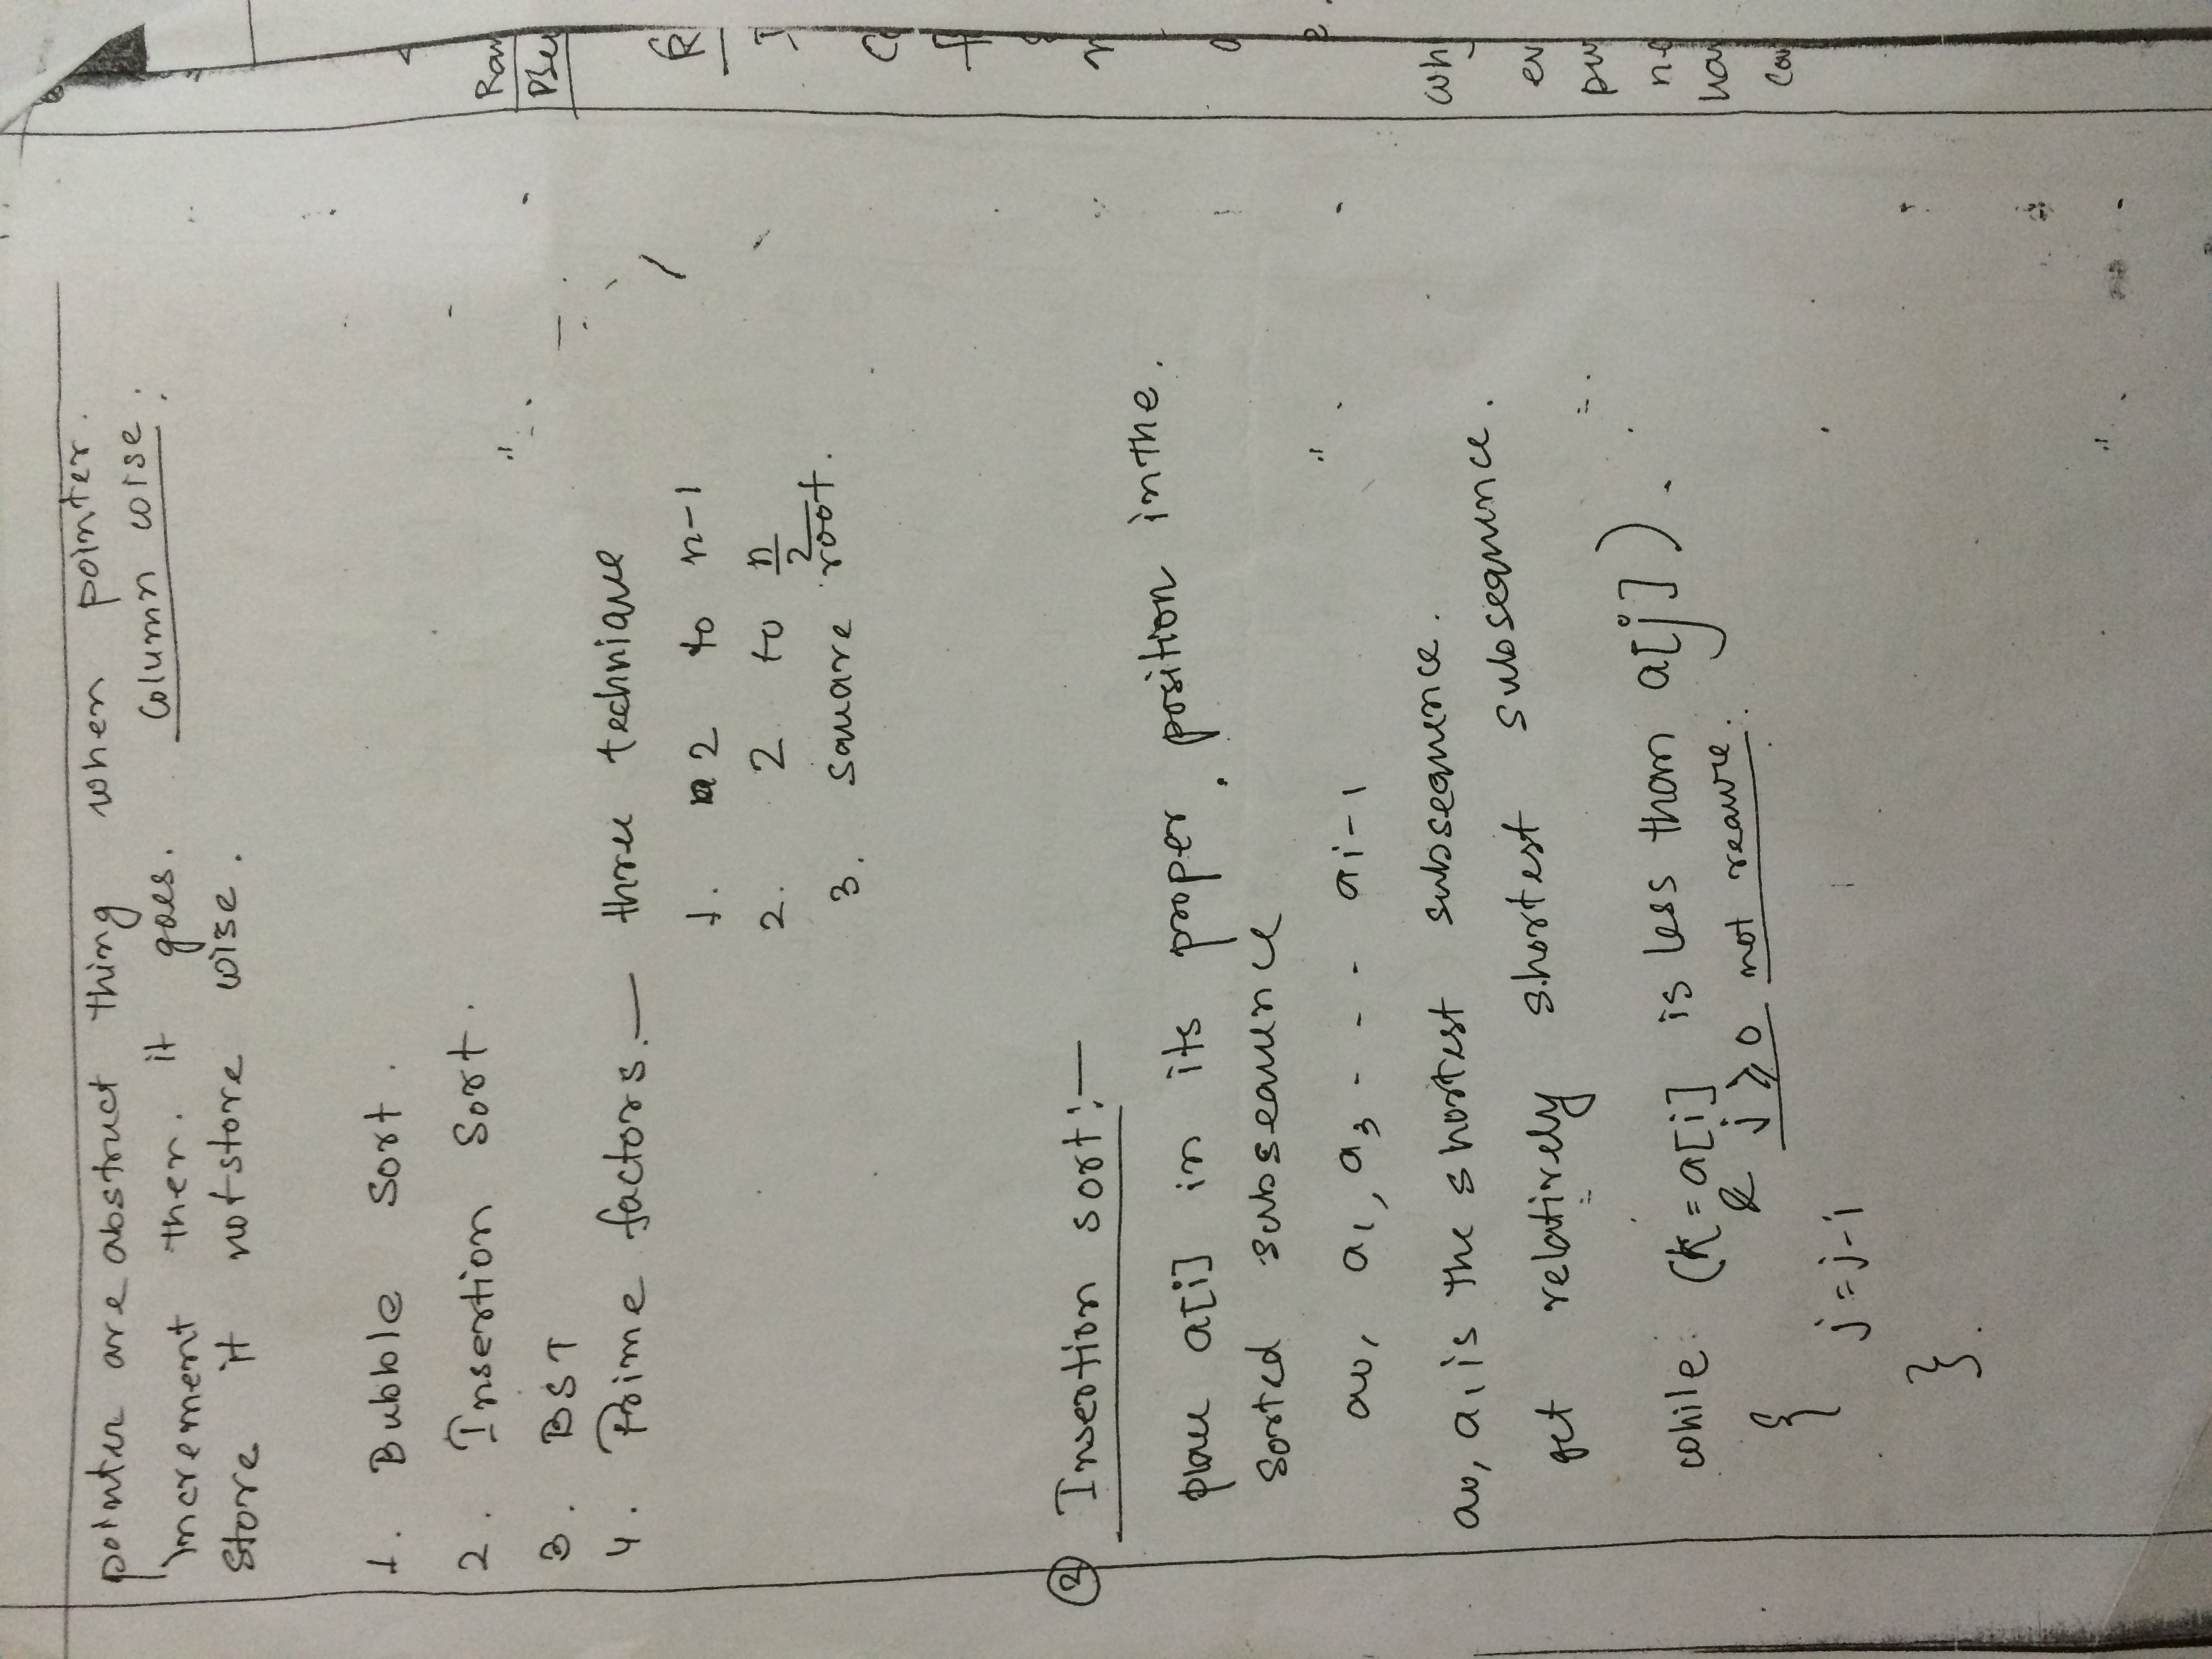 pointer are abstruct thing when pointer.
increment then. it goes. column wise.
store it not store wise.
1. Bubble Sort.
2. Insertion Sort.
3. BST
4. Prime factors. — three technique
1. 2 to n-1
2. 2 to n/2
3. square root.
② Insertion sort:—
place a[i] in its proper position in the.
sorted subsequence
a0, a1, a3 - - - ai-1
a0, a1 is the shortest subsequence.
get relatively shortest subsequence.
while (k = a[i] is less than a[j]).
& j ≥ 0 not requre.
{
j = j-1
}.